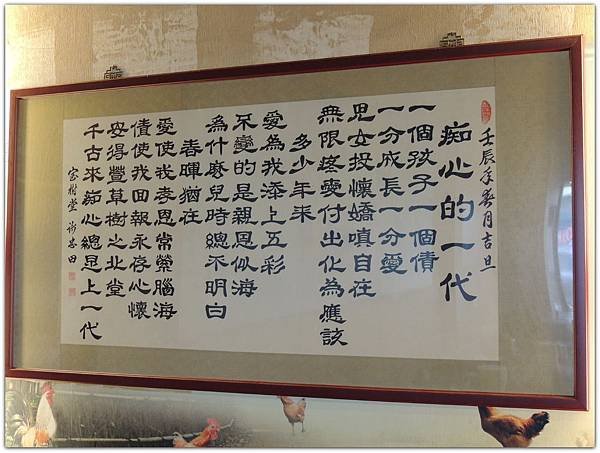 壬辰年月吉旦
痴心的一代
一個孩子一個債
一分成長一分愛
兒女投懷嬌嗔自在
無限疼愛付出化為應該
多少年来
愛為我添上五彩
不變的是親恩似海
為什麼兒時總不明白
春暉猶在
愛使我孝恩常縈腦海
債使我回報永存心懷
安得萱草樹之北堂
千古來痴心總是上一代
宝樹堂 忠田